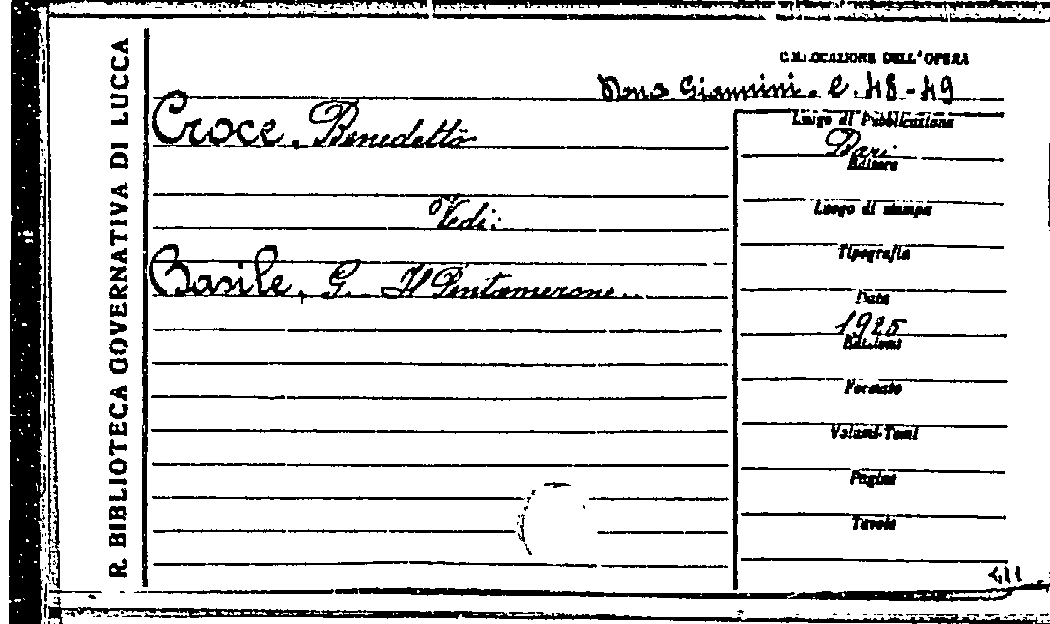 R. BIBLIOTECA GOVERNATIVA DI LUCCA
COLLOCAZIONE DELL'OPERA
Dono Giannini. C. 48-49
Croce, Benedetto
Vedi:
Basile, G. Il Pentamerone.
Luogo di Pubblicazione
Bari
Editore
Luogo di stampa
Tipografia
Data
1925
Edizione
Formato
Volumi-Tomi
Pagine
Tavole